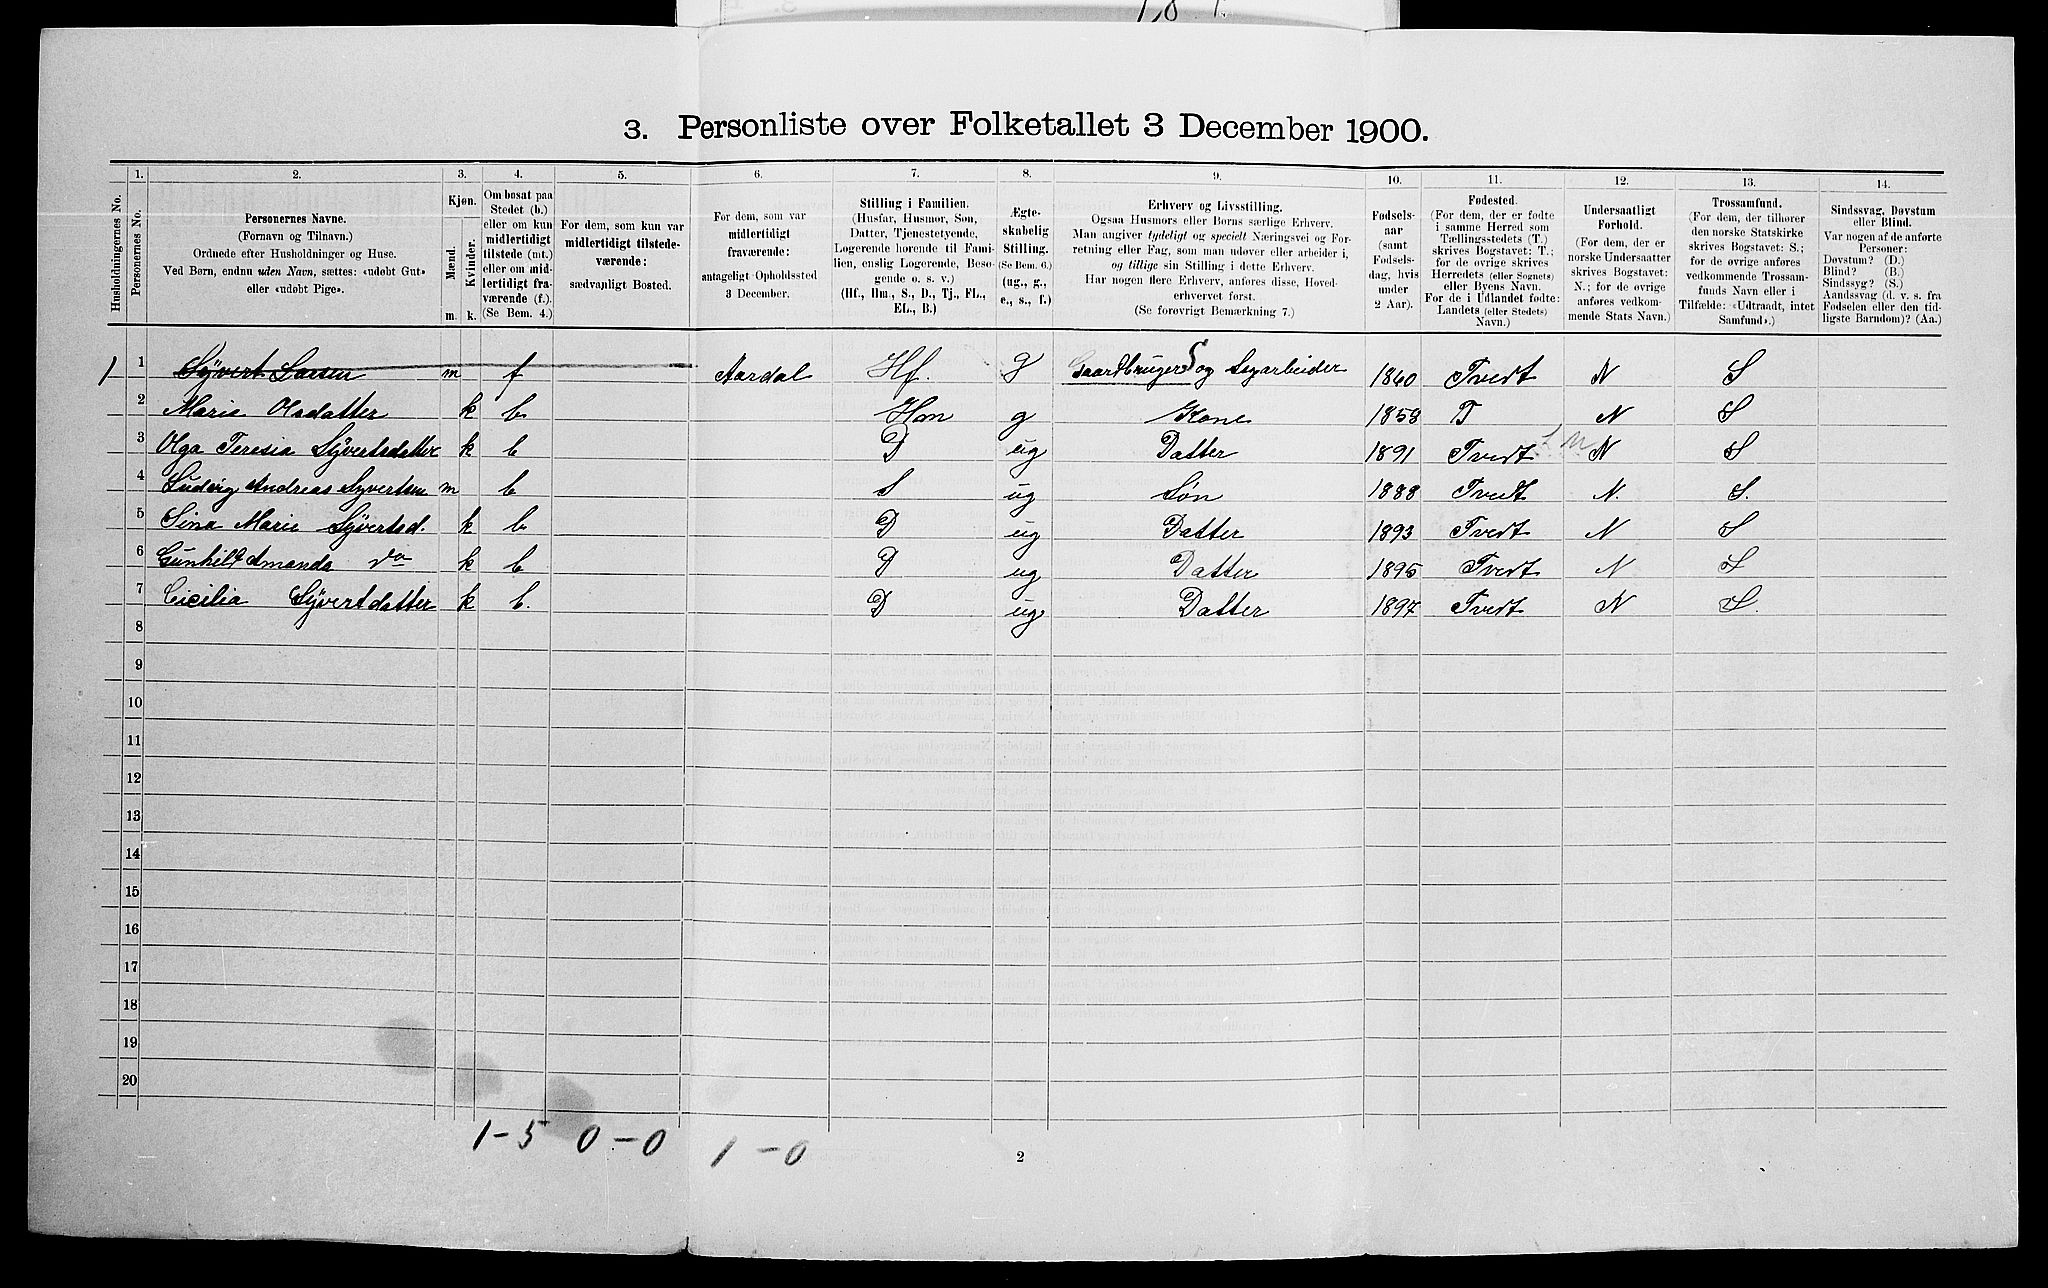 3. Personliste over Folketallet 3 December 1900.
1. 2. 3. 4. 5. 6. 7. 8. 9. 10. 11. 12. 13. 14.
Husholdningernes No.
Personernes No.
Personernes Navne.
(Fornavn og Tilnavn.)
Ordnede efter Husholdninger og Huse.
Ved Børn, endnu uden Navn, sættes: «udøbt Gut»
eller «udøbt Pige».
Kjøn.
Mænd.
Kvinder.
m. k.
Om bosat paa
Stedet (b.)
eller om kun
midlertidigt
tilstede (mt.)
eller om mid-
lertidigt fra-
værende (f.).
(Se Bem. 4.)
For dem, som kun var
midlertidigt tilstede-
værende:
sædvanligt Bosted.
For dem, som var
midlertidigt
fraværende:
antageligt Opholdssted
3 December.
Stilling i Familien.
(Husfar, Husmor, Søn,
Datter, Tjenestetyende,
Logerende hørende til Fami-
lien, enslig Logerende, Besø-
gende o. s. v.)
(Hf., Hm., S., D., Tj., FL.,
EL., B.)
Ægte-
skabelig
Stilling.
(Se Bem. 6.)
(ug., g.,
e., s., f.)
Erhverv og Livsstilling.
Ogsaa Husmors eller Børns særlige Erhverv.
Man angiver tydeligt og specielt Næringsvei og For-
retning eller Fag, som man udøver eller arbeider i,
og tillige sin Stilling i dette Erhverv.
Har nogen flere Erhverv, anføres disse, Hoved-
erhvervet først.
(Se forøvrigt Bemærkning 7.)
Fødsels-
aar
(samt
Fødsels-
dag, hvis
under
2 Aar).
Fødested.
(For dem, der er fødte
i samme Herred som
Tællingsstedets (T.)
skrives Bogstavet: T.;
for de øvrige skrives
Herredets (eller Sognets)
eller Byens Navn.
For de i Udlandet fødte:
Landets (eller Stedets)
Navn.)
Undersaatligt
Forhold.
(For dem, der er
norske Undersaatter
skrives Bogstavet:
N.; for de øvrige
anføres vedkom-
mende Stats Navn.)
Trossamfund.
(For dem, der tilhører
den norske Statskirke
skrives Bogstavet: S.;
for de øvrige anføres
vedkommende Trossam-
funds Navn eller i
Tilfælde: «Udtraadt, intet
Samfund».)
Sindssvag, Døvstum
eller Blind.
Var nogen af de anførte
Personer:
Døvstum? (D.)
Blind? (B.)
Sindssyg? (S.)
Aandssvag (d. v. s. fra
Fødselen eller den tid-
ligste Barndom)? (Aa.)
1 1 Syvert Larsen m f Aardal Hf. g Gaardbruger S og Sagarbeider 1860 Tvedt N S
2 Marie Olsdatter k b Hm g Kone 1858 T N S
3 Olga Teresia Syvertsdatter k b D ug Datter 1891 Tvedt N S
4 Ludvig Andreas Syvertsen m b S ug Søn 1888 Tvedt N. S.
5 Sina Marie Syvertsd. k b D ug Datter 1893 Tvedt N S
6 Gunhild Amanda do k b D ug Datter 1895 Tvedt N S
7 Cicilia Syvertdatter k b. D ug Datter 1897 Tvedt N S.
8
9
10
11
12
13
14
15
16
17
18
19
20
1-5 0-0 1-0
2